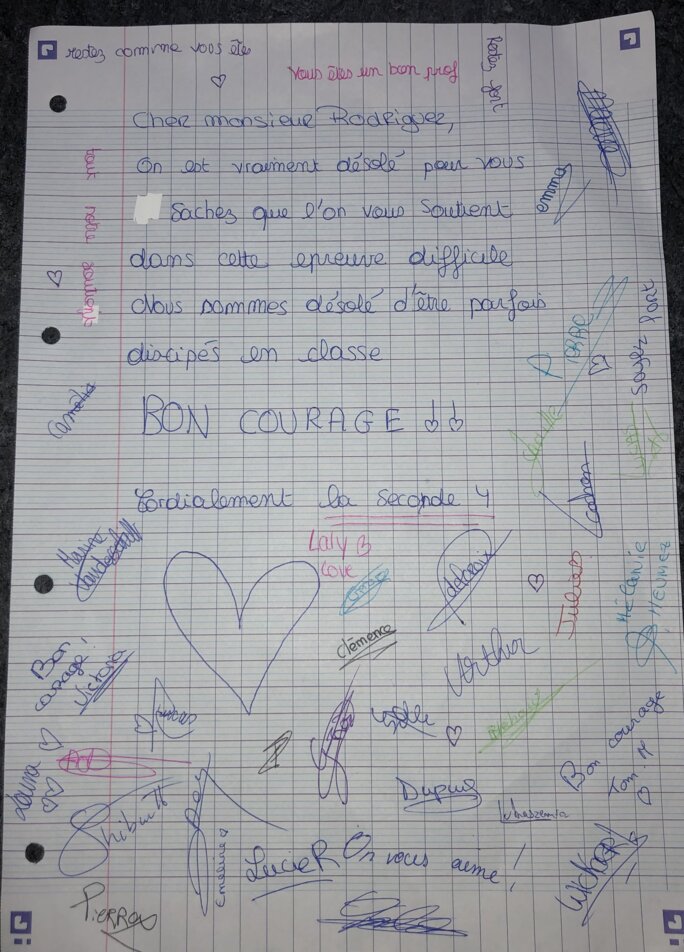 restez comme vous êtes
Vous êtes un bon prof
Restez fort
Cher monsieur Rodriguez,
On est vraiment désolé pour vous
Sachez que l'on vous soutient
dans cette epreuve difficile
Nous sommes désolé d'être parfois
dissipés en classe
BON COURAGE
Cordialement la seconde 4
tout notre soutient
emma
Soyez fort
Camélia
Laly
Love
Clémence
delcroix
Julien
Mélanie
Arthur
Marine
Bon
courage!
Victoria
Laura
Thibault
Dupuis
Bon courage
Tom. M
Emeline
Lucie R
On vous aime!
Pierre